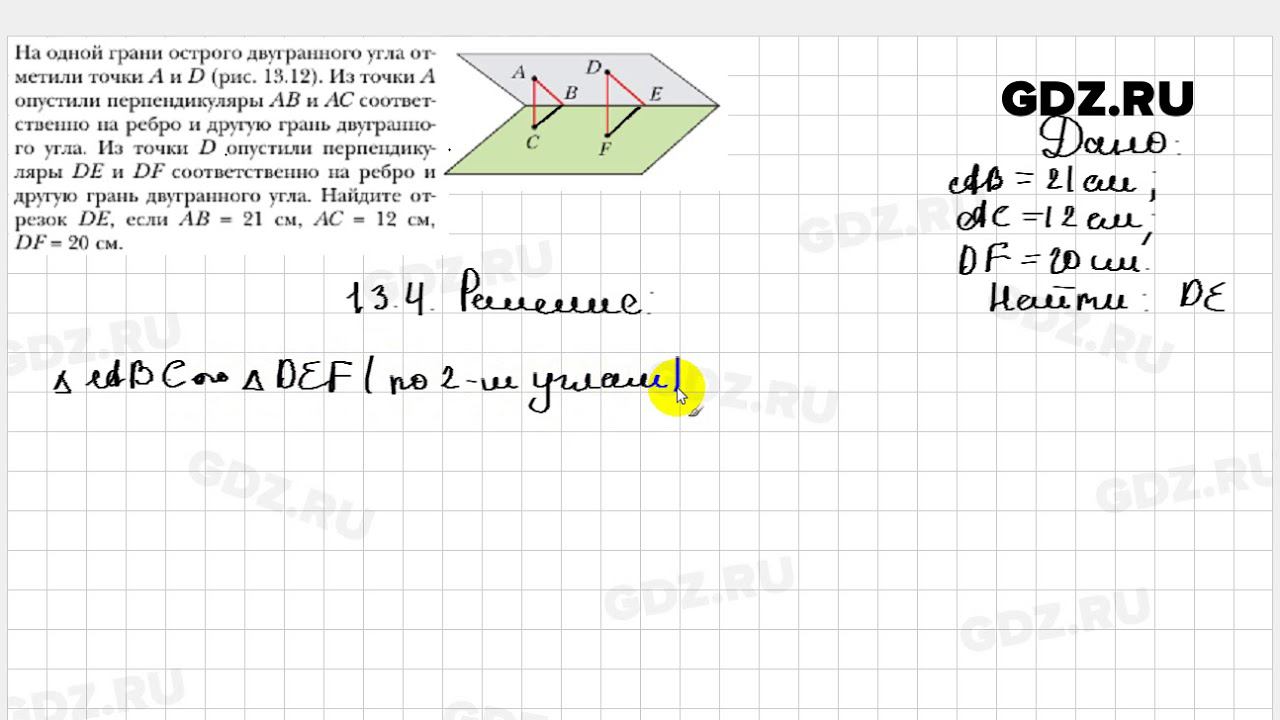 На одной грани острого двугранного угла от-
метили точки A и D (рис. 13.12). Из точки A
опустили перпендикуляры AB и AC соответ-
ственно на ребро и другую грань двугранно-
го угла. Из точки D опустили перпендику-
ляры DE и DF соответственно на ребро и
другую грань двугранного угла. Найдите от-
резок DE, если AB = 21 см, AC = 12 см,
DF = 20 см.
A
D
B
E
C
F
GDZ.RU
Дано:
AB = 21 см;
AC = 12 см;
DF = 20 см.
Найти: DE
13.4. Решение:
△ ABC ∾ △ DEF ( по 2-м углам)
GDZ.RU
GDZ.RU
GDZ.RU
GDZ.RU
GDZ.RU
GDZ.RU
GDZ.RU
GDZ.RU
GDZ.RU
GDZ.RU
GDZ.RU